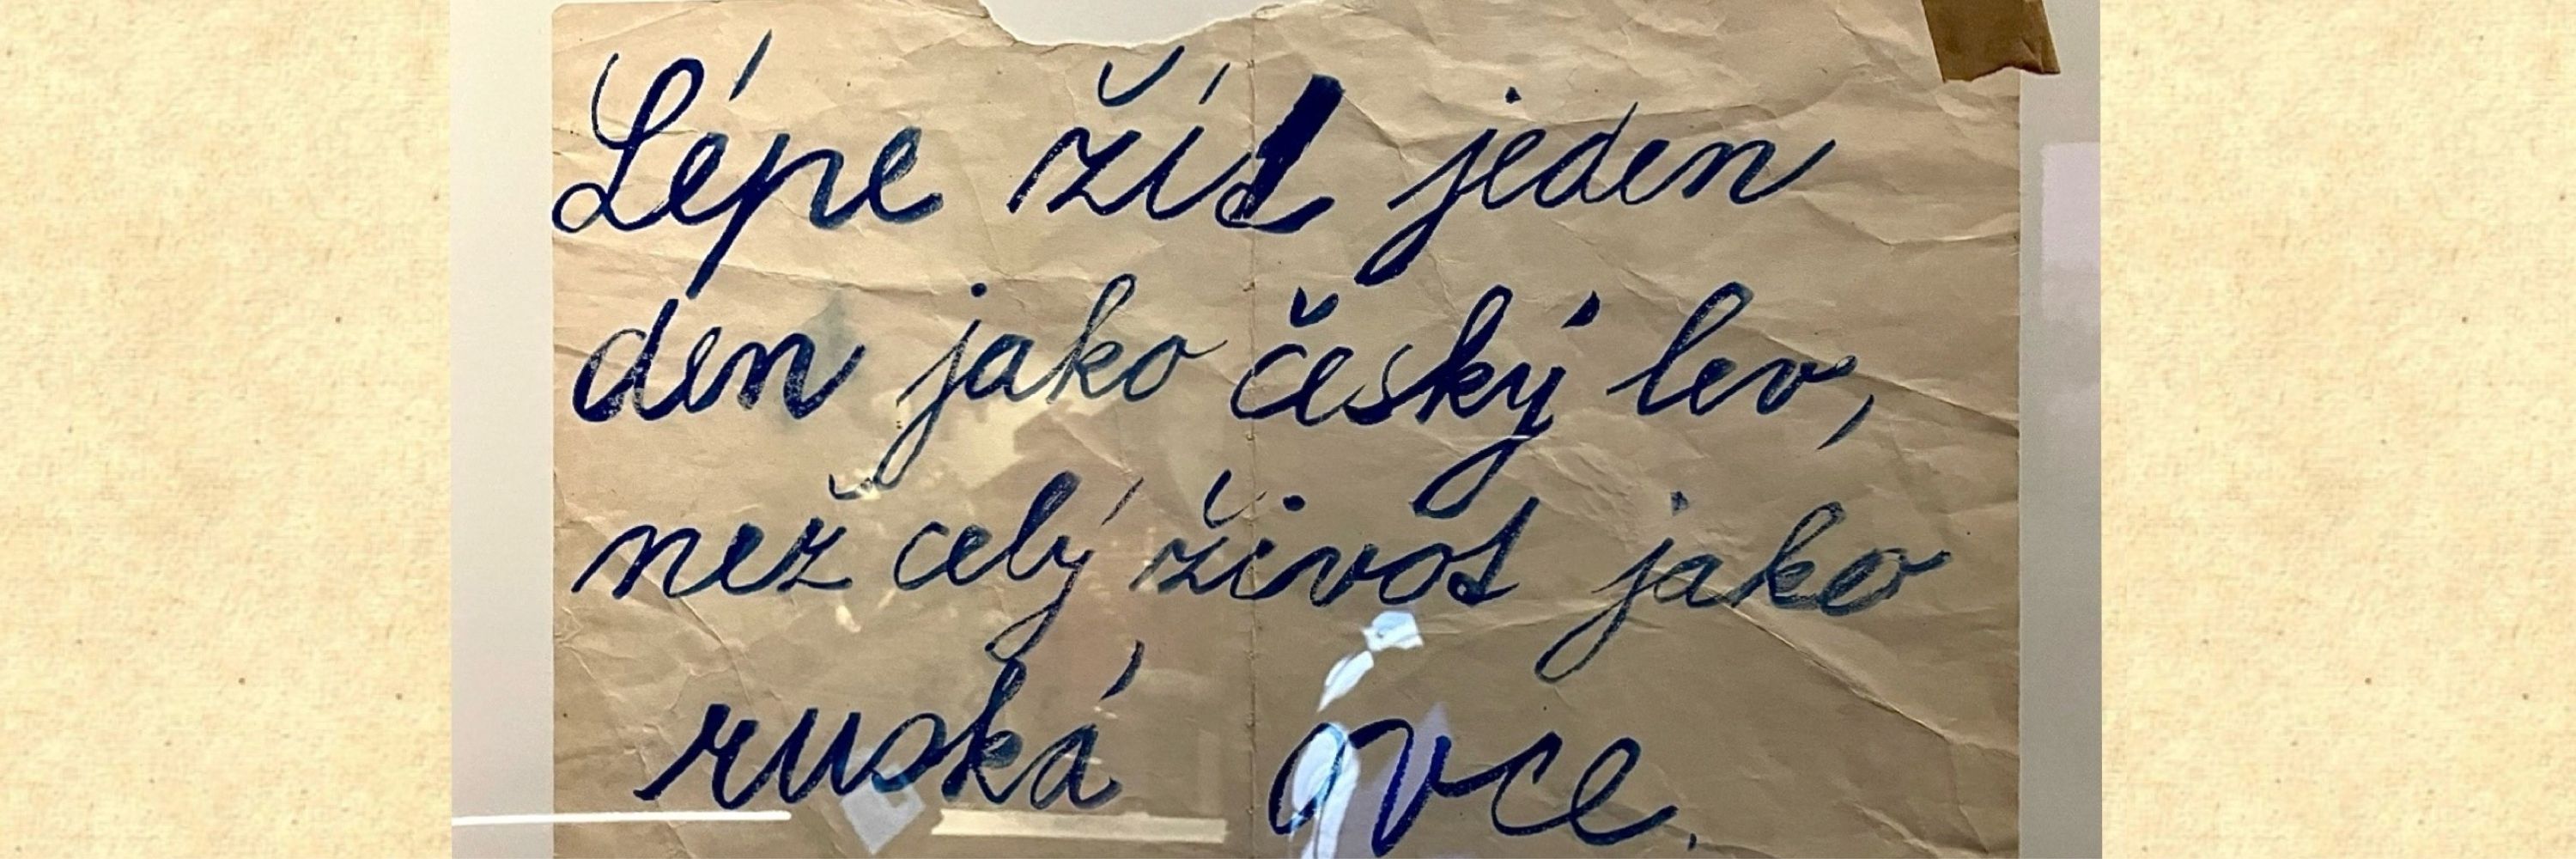 Lépe žít jeden
den jako český lev,
než celý život jako
ruská ovce.